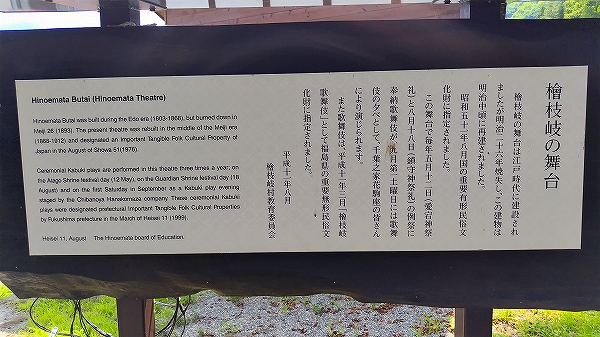 Hinoemata Butai (Hinoemata Theatre)
Hinoemata Butai was built during the Edo era (1603-1868), but burned down in
Meiji 26 (1893). The present theatre was rebuilt in the middle of the Meiji era
(1868-1912) and designated an Important Tangible Folk Cultural Property of
Japan in the August of Showa 51(1976).
Ceremonial Kabuki plays are performed in this theatre three times a year; on
the Atago Shrine festival day (12 May), on the Guardian Shrine festival day (18
August) and on the first Saturday in September as a Kabuki play evening
staged by the Chibanoya Hanakomaza. These ceremonial Kabuki
plays were designated prefectural Important Tangible Folk Cultural Properties
by Fukushima prefecture in the March of Heisei 11 (1999).
Heisei 11, August The Hinoemata board of Education.
檜枝岐の舞台
檜枝岐の舞台は江戸時代に建設され
ましたが明治二十六年焼失し、この建物は
明治中頃に再建されました。
昭和五十一年八月国の重要有形民俗文
化財に指定されました。
この舞台で毎年五月十二日（愛宕神祭
礼）と八月十八日（鎮守神祭礼）の例祭に
奉納歌舞伎が、九月第一土曜日には歌舞
伎の夕べとして、千葉之家花駒座の皆さん
により演じられます。
また歌舞伎は、平成十一年三月「檜枝岐
歌舞伎」として福島県の重要無形民俗文
化財に指定されました。
平成十一年八月
檜枝岐村教育委員会